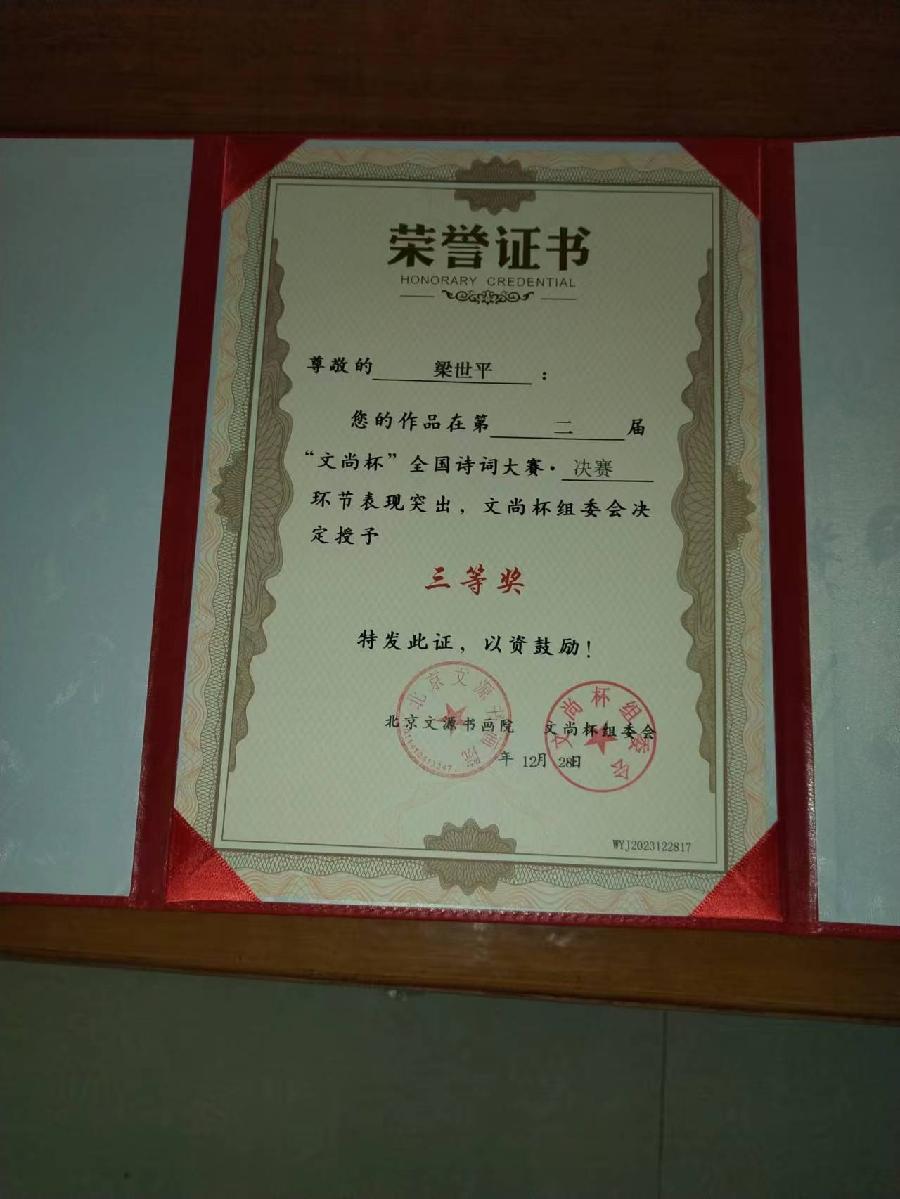 荣誉证书
HONORARY CREDENTIAL
尊敬的 梁世平 :
您的作品在第 二 届
“文尚杯”全国诗词大赛·决赛
环节表现突出，文尚杯组委会决
定授予
三等奖
特发此证，以资鼓励！
北京文源书画院 文尚杯组委会
年 12月 28日
北京文源书画院
文尚杯组委会
WYJ2023122817